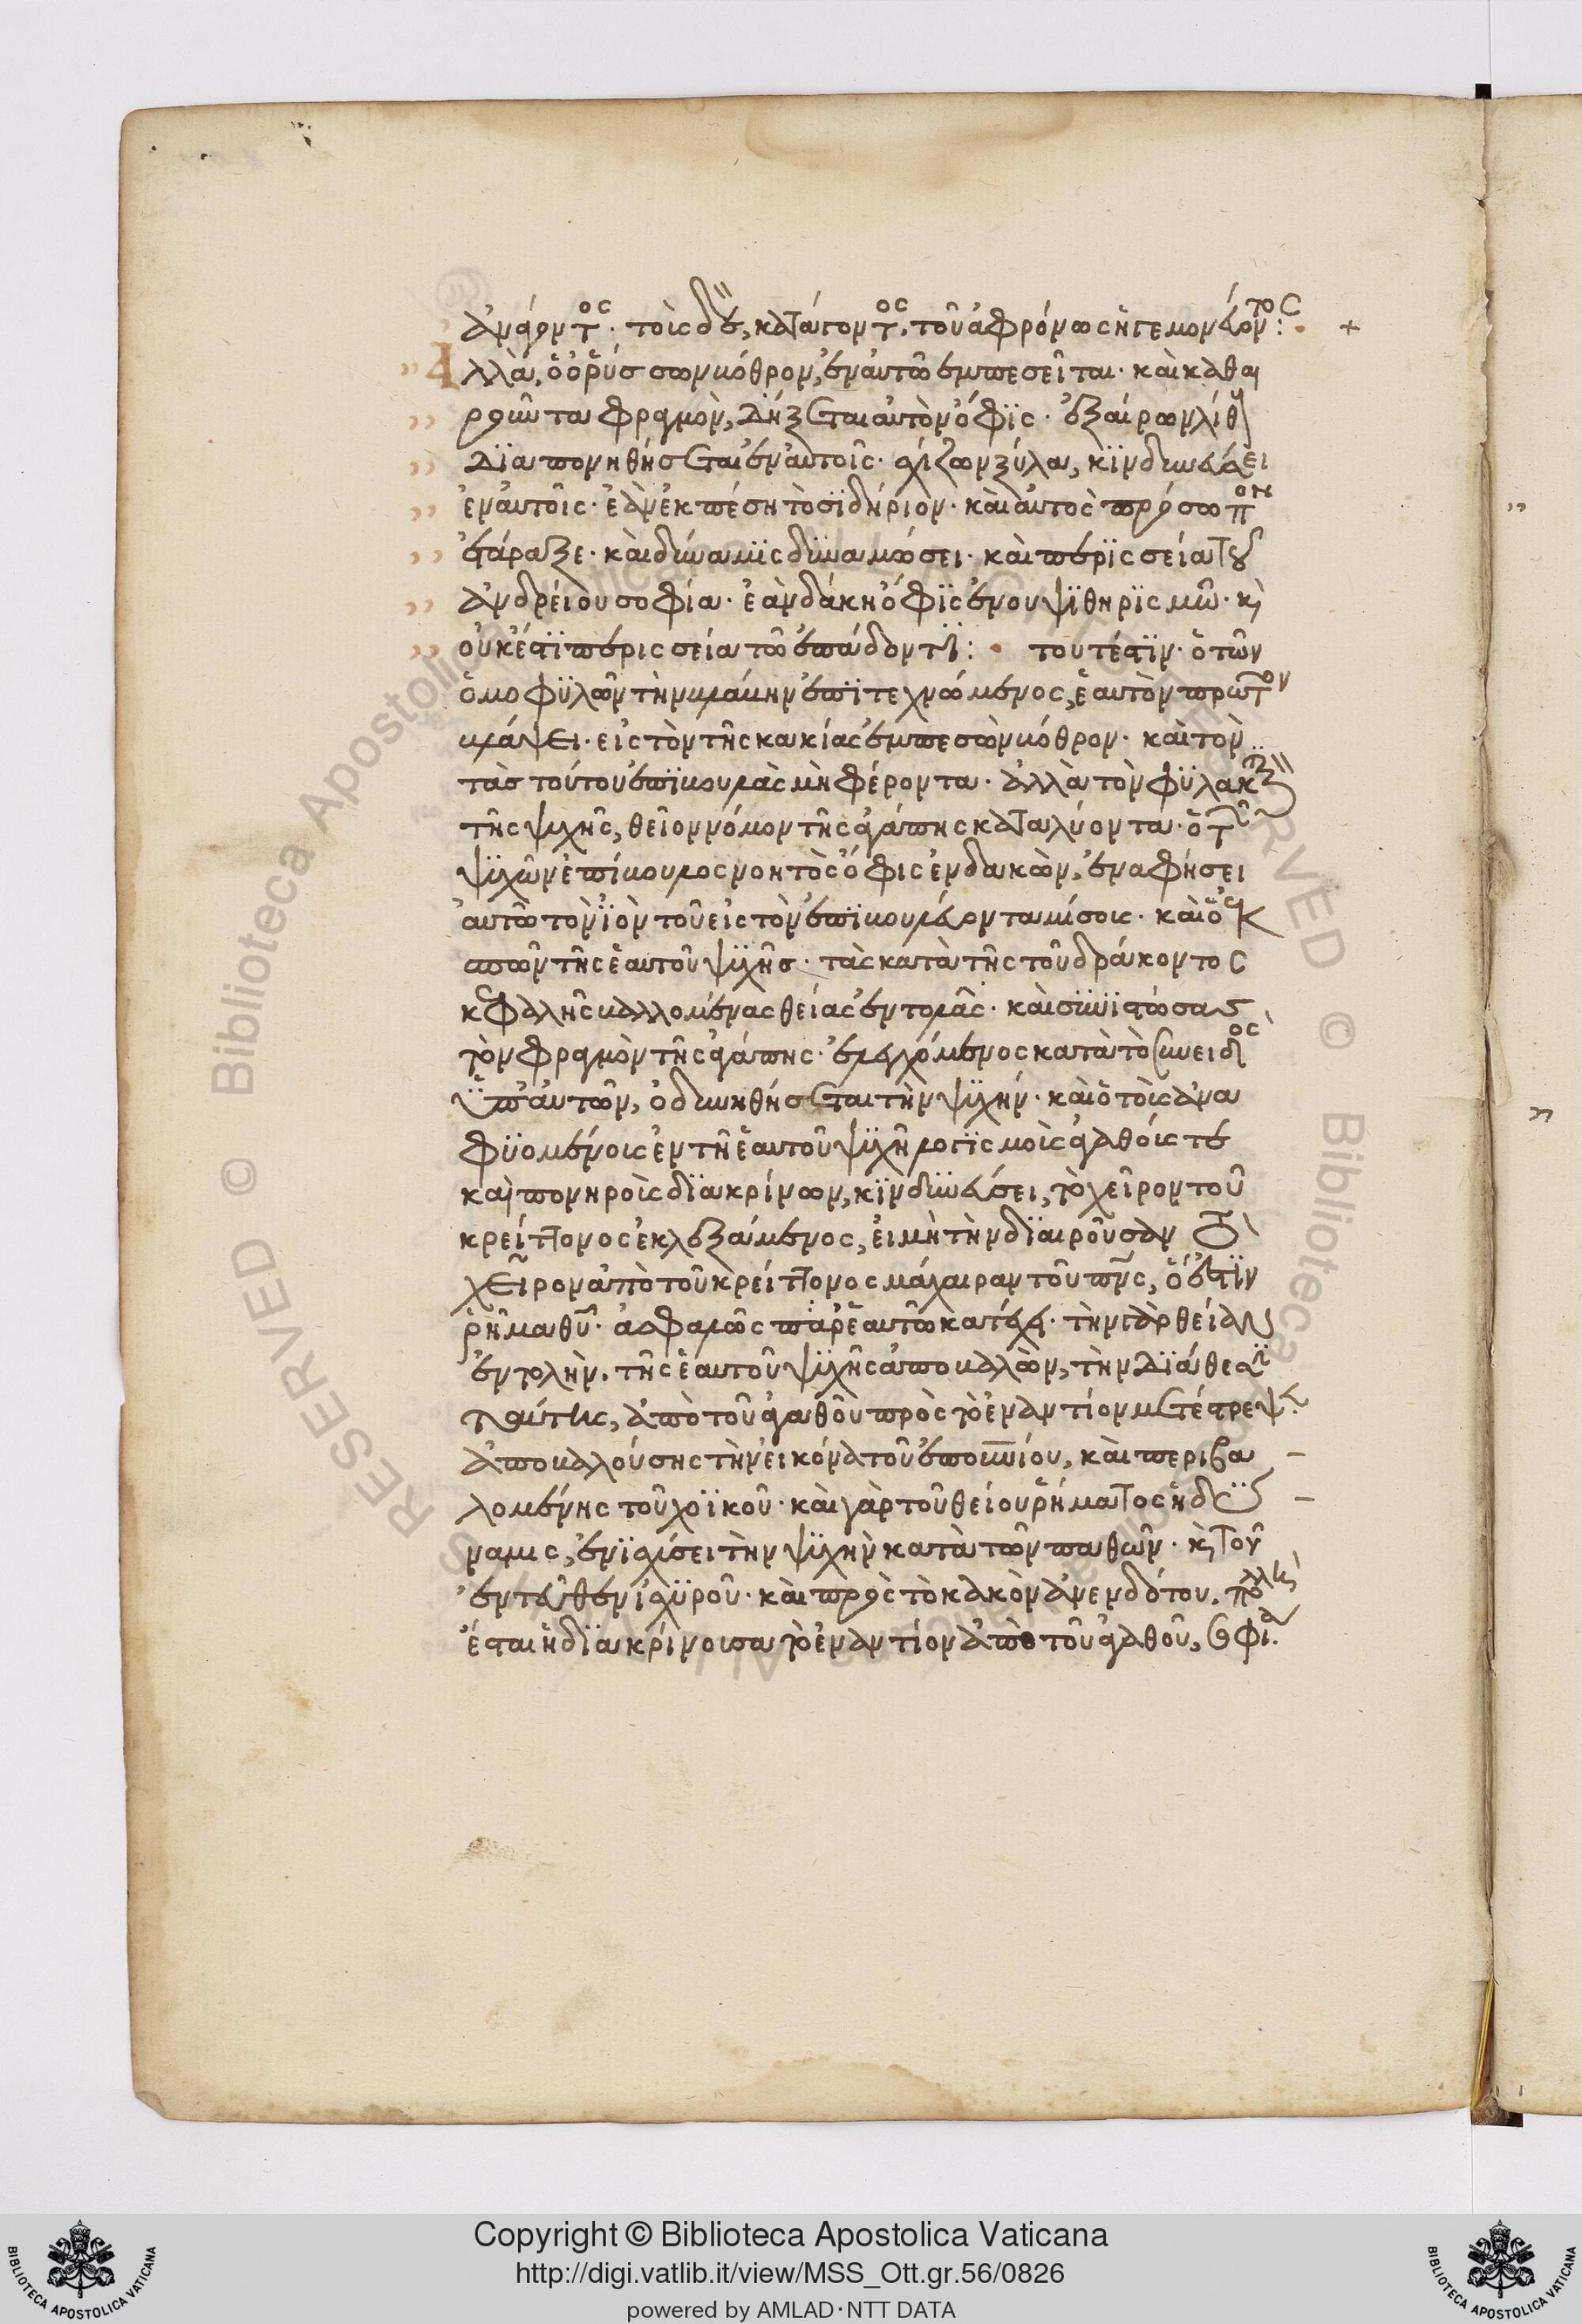 ἀνάγοντος· τοῖς δὲ, κατάγοντος. τοῦ ἀφρόνως ἡγεμονεύοντος:
Ἀλλὰ, ὁ ὀρύσσων βόθρον, ἐν αὐτῶ ἐμπεσεῖται· καὶ καθαι
ροῦντα φραγμὸν, δήξεται αὐτὸν ὄφϊς· ἐξαίρων λίθους
διαπονηθήσεται ἐν αὐτοῖς· σχίζων ξύλα, κϊνδυνεύσει
ἐν αὐτοῖς· ἐὰν ἐκπέση τὸ σϊδήριον· καὶ αὐτὸς πρόσωπον
ἐτάραξε· καὶ δυνάμϊς δυναμώσει· καὶ περϊσσεία τοῦ
ἀνδρείου σοφία· ἐὰν δάκη ὄφϊς ἐν οὐ ψϊθηρϊσμῶ· καὶ
οὐκ ἔστϊ περισσεία τῶ ἐπάδοντϊ: τουτέστϊν· ὁ τῶν
ὁμοφϋλων τὴν βλάβην ἐπϊτεχνώμενος, ἑαυτὸν πρῶτον
βλάψει· εἰς τὸν τῆς κακίας ἐμπεσὼν βόθρον· καὶ τὸν
τὰς τούτου ἐπϊβουλὰς μὴ φέροντα· ἀλλὰ τὸν φϋλακτικὸν
τῆς ψυχῆς, θεῖον νόμον τῆς ἀγάπης καταλύοντα· ὁ τῶν
ψϋχῶν ἐπίβουλος νοητὸς ὄφις ἐνδακὼν, ἐναφήσει
αὐτῶ τὸν ἰὸν τοῦ εἰς τὸν ἐπϊβουλεύοντα μίσους· καὶ ὁ ἐκ
σπῶν τῆς ἑαυτοῦ ψϋχῆς· τὰς κατὰ τῆς τοῦ δράκοντος
κεφαλῆς βαλλομένας θείας ἐντολὰς· καὶ συνϊστώσας
τὸν φραγμὸν τῆς ἀγάπης· ἐλεγχόμενος κατὰ τὸ συνειδὸς
ὑπ' αὐτῶν, ὀδυνηθήσεται τὴν ψϋχήν· καὶ ὁ τοῖς ἀνα
φϋομένοις ἐν τῆ ἑαυτοῦ ψϋχῆ λογϊσμοῖς ἀγαθοῖς τε
καὶ πονηροῖς δϊακρίνων, κϊνδυνεύσει, τὸ χεῖρον τοῦ
κρείττονος ἐκλεξάμενος, εἰ μὴ τὴν δϊαιροῦσαν τὸ
χεῖρον ἀπὸ τοῦ κρείττονος μάχαιραν τοῦ πνς, ὅ ἐστϊν
ῥῆμα θυ· ἀσφαλῶς παρ' ἑαυτῶ κατέχη· τὴν γὰρ θείαν
ἐντολὴν· τῆς ἑαυτοῦ ψϋχῆς ἀποβαλὼν, τὴν δϊάθεσϊν
ταύτης, ἀπὸ τοῦ ἀγαθοῦ πρὸς τὸ ἐναντίον μετέστρεψεν·
ἀποβαλούσης τὴν εἰκόνα τοῦ ἐπουνίου, καὶ περιβα
λομένης τοῦ χοϊκοῦ· καὶ γὰρ τοῦ θείου ῥήματος ἡ δύ
ναμις, ἐνϊσχύσει τὴν ψϋχὴν κατὰ τῶν παθῶν· καὶ τοῦ
ἐντεῦθεν ἰσχϋροῦ· καὶ πρὸς τὸ κακὸν ἀνενδότου, πολλὴ
ἔσται ἡ δϊακρίνουσα τὸ ἐναντίον ἀπὸ τοῦ ἀγαθοῦ, σοφία.
Copyright © Biblioteca Apostolica Vaticana
http://digi.vatlib.it/view/MSS_Ott.gr.56/0826
powered by AMLAD·NTT DATA